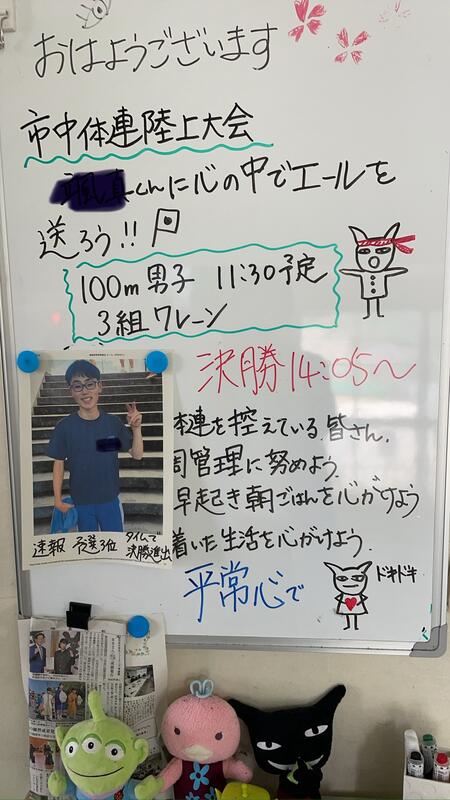 おはようございます
市中体連陸上大会
くんに心の中でエールを
送ろう!!
100m男子 11:30予定
3組7レーン
決勝14:05~
体連を控えている皆さん.
周管理に努めよう.
早起き朝ごはんを心がけよう
着いた生活を心がけよう.
平常心で
ドキドキ
速報 予選3位 タイムで
決勝進出